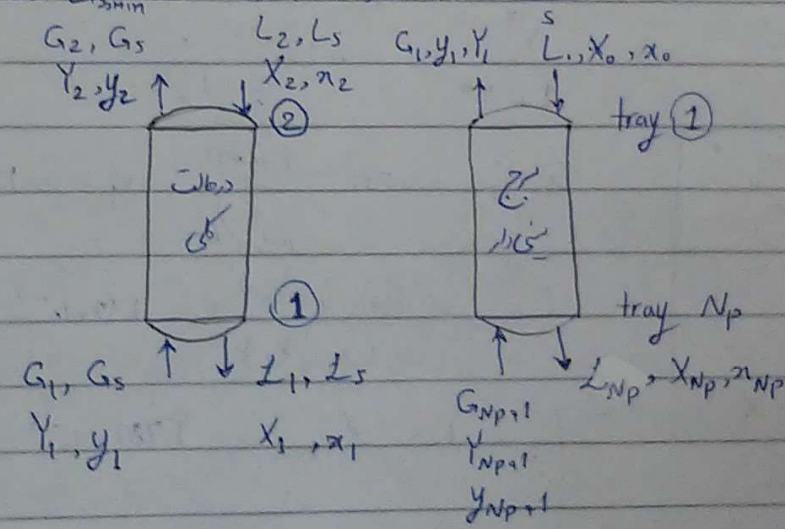 G₂, Gₛ
Y₂, y₂
L₂, Lₛ
X₂, x₂
②
در حالت
کلی
①
G₁, Gₛ
Y₁, y₁
L₁, Lₛ
X₁, x₁
G₁, y₁, Y₁
S
L₀, X₀, x₀
tray ①
برج
سینی دار
tray Np
G_Np+1
Y_Np+1
y_Np+1
L_Np, X_Np, x_Np